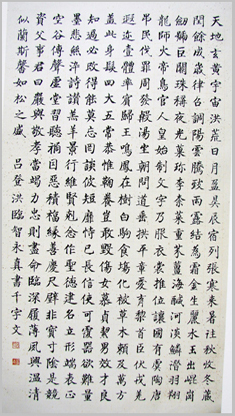 天地玄黃宇宙洪荒日月盈昃辰宿列張寒來暑往秋收冬藏
閏餘成歲律召調陽雲騰致雨露結為霜金生麗水玉出崐崗
劍號巨闕珠稱夜光菓珍李柰菜重芥薑海醎河淡鱗潛羽翔
龍師火帝鳥官人皇始制文字乃服衣裳推位讓國有虞陶唐
吊民伐罪周發殷湯坐朝問道垂拱平章愛育黎首臣伏戎羌
遐邇壹體率賓歸王鳴鳳在樹白駒食場化被草木賴及萬方
蓋此身髮四大五常恭惟鞠養豈敢毀傷女慕貞絜男效才良
知過必改得能莫忘罔談彼短靡恃己長信使可覆器欲難量
墨悲絲染詩讚羔羊景行維賢剋念作聖德建名立形端表正
空谷傳聲虛堂習聽禍因惡積福緣善慶尺璧非寶寸陰是競
資父事君曰嚴與敬孝當竭力忠則盡命臨深履薄夙興溫凊
似蘭斯馨如松之盛 呂登洪臨智永真書千字文